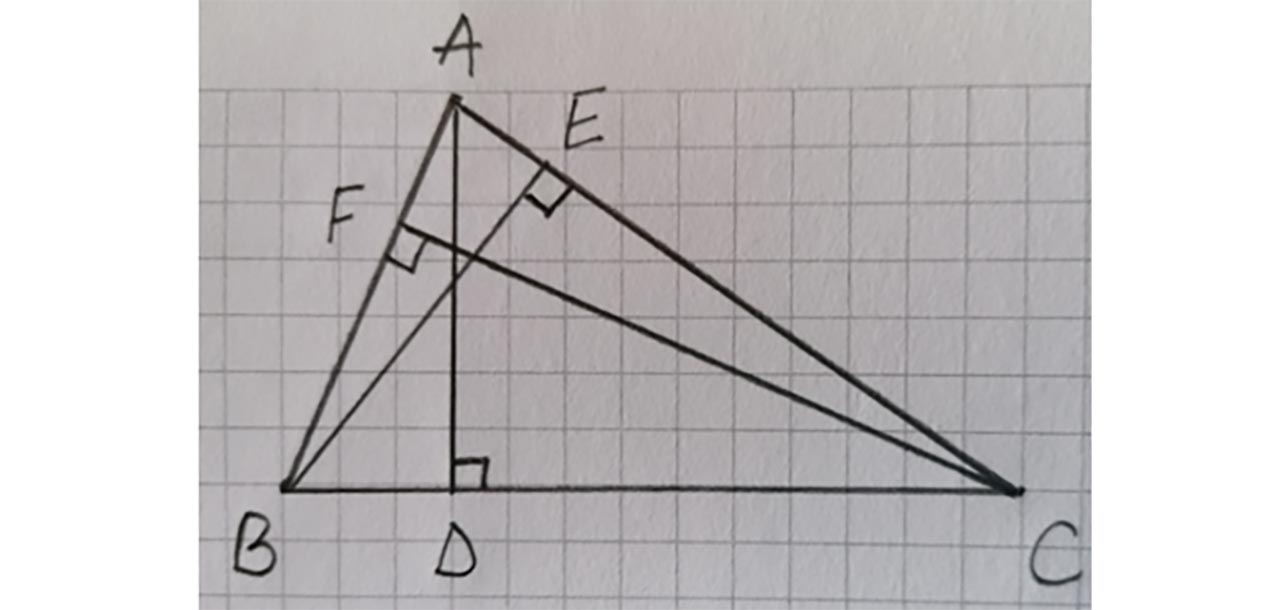 A
E
F
B D C